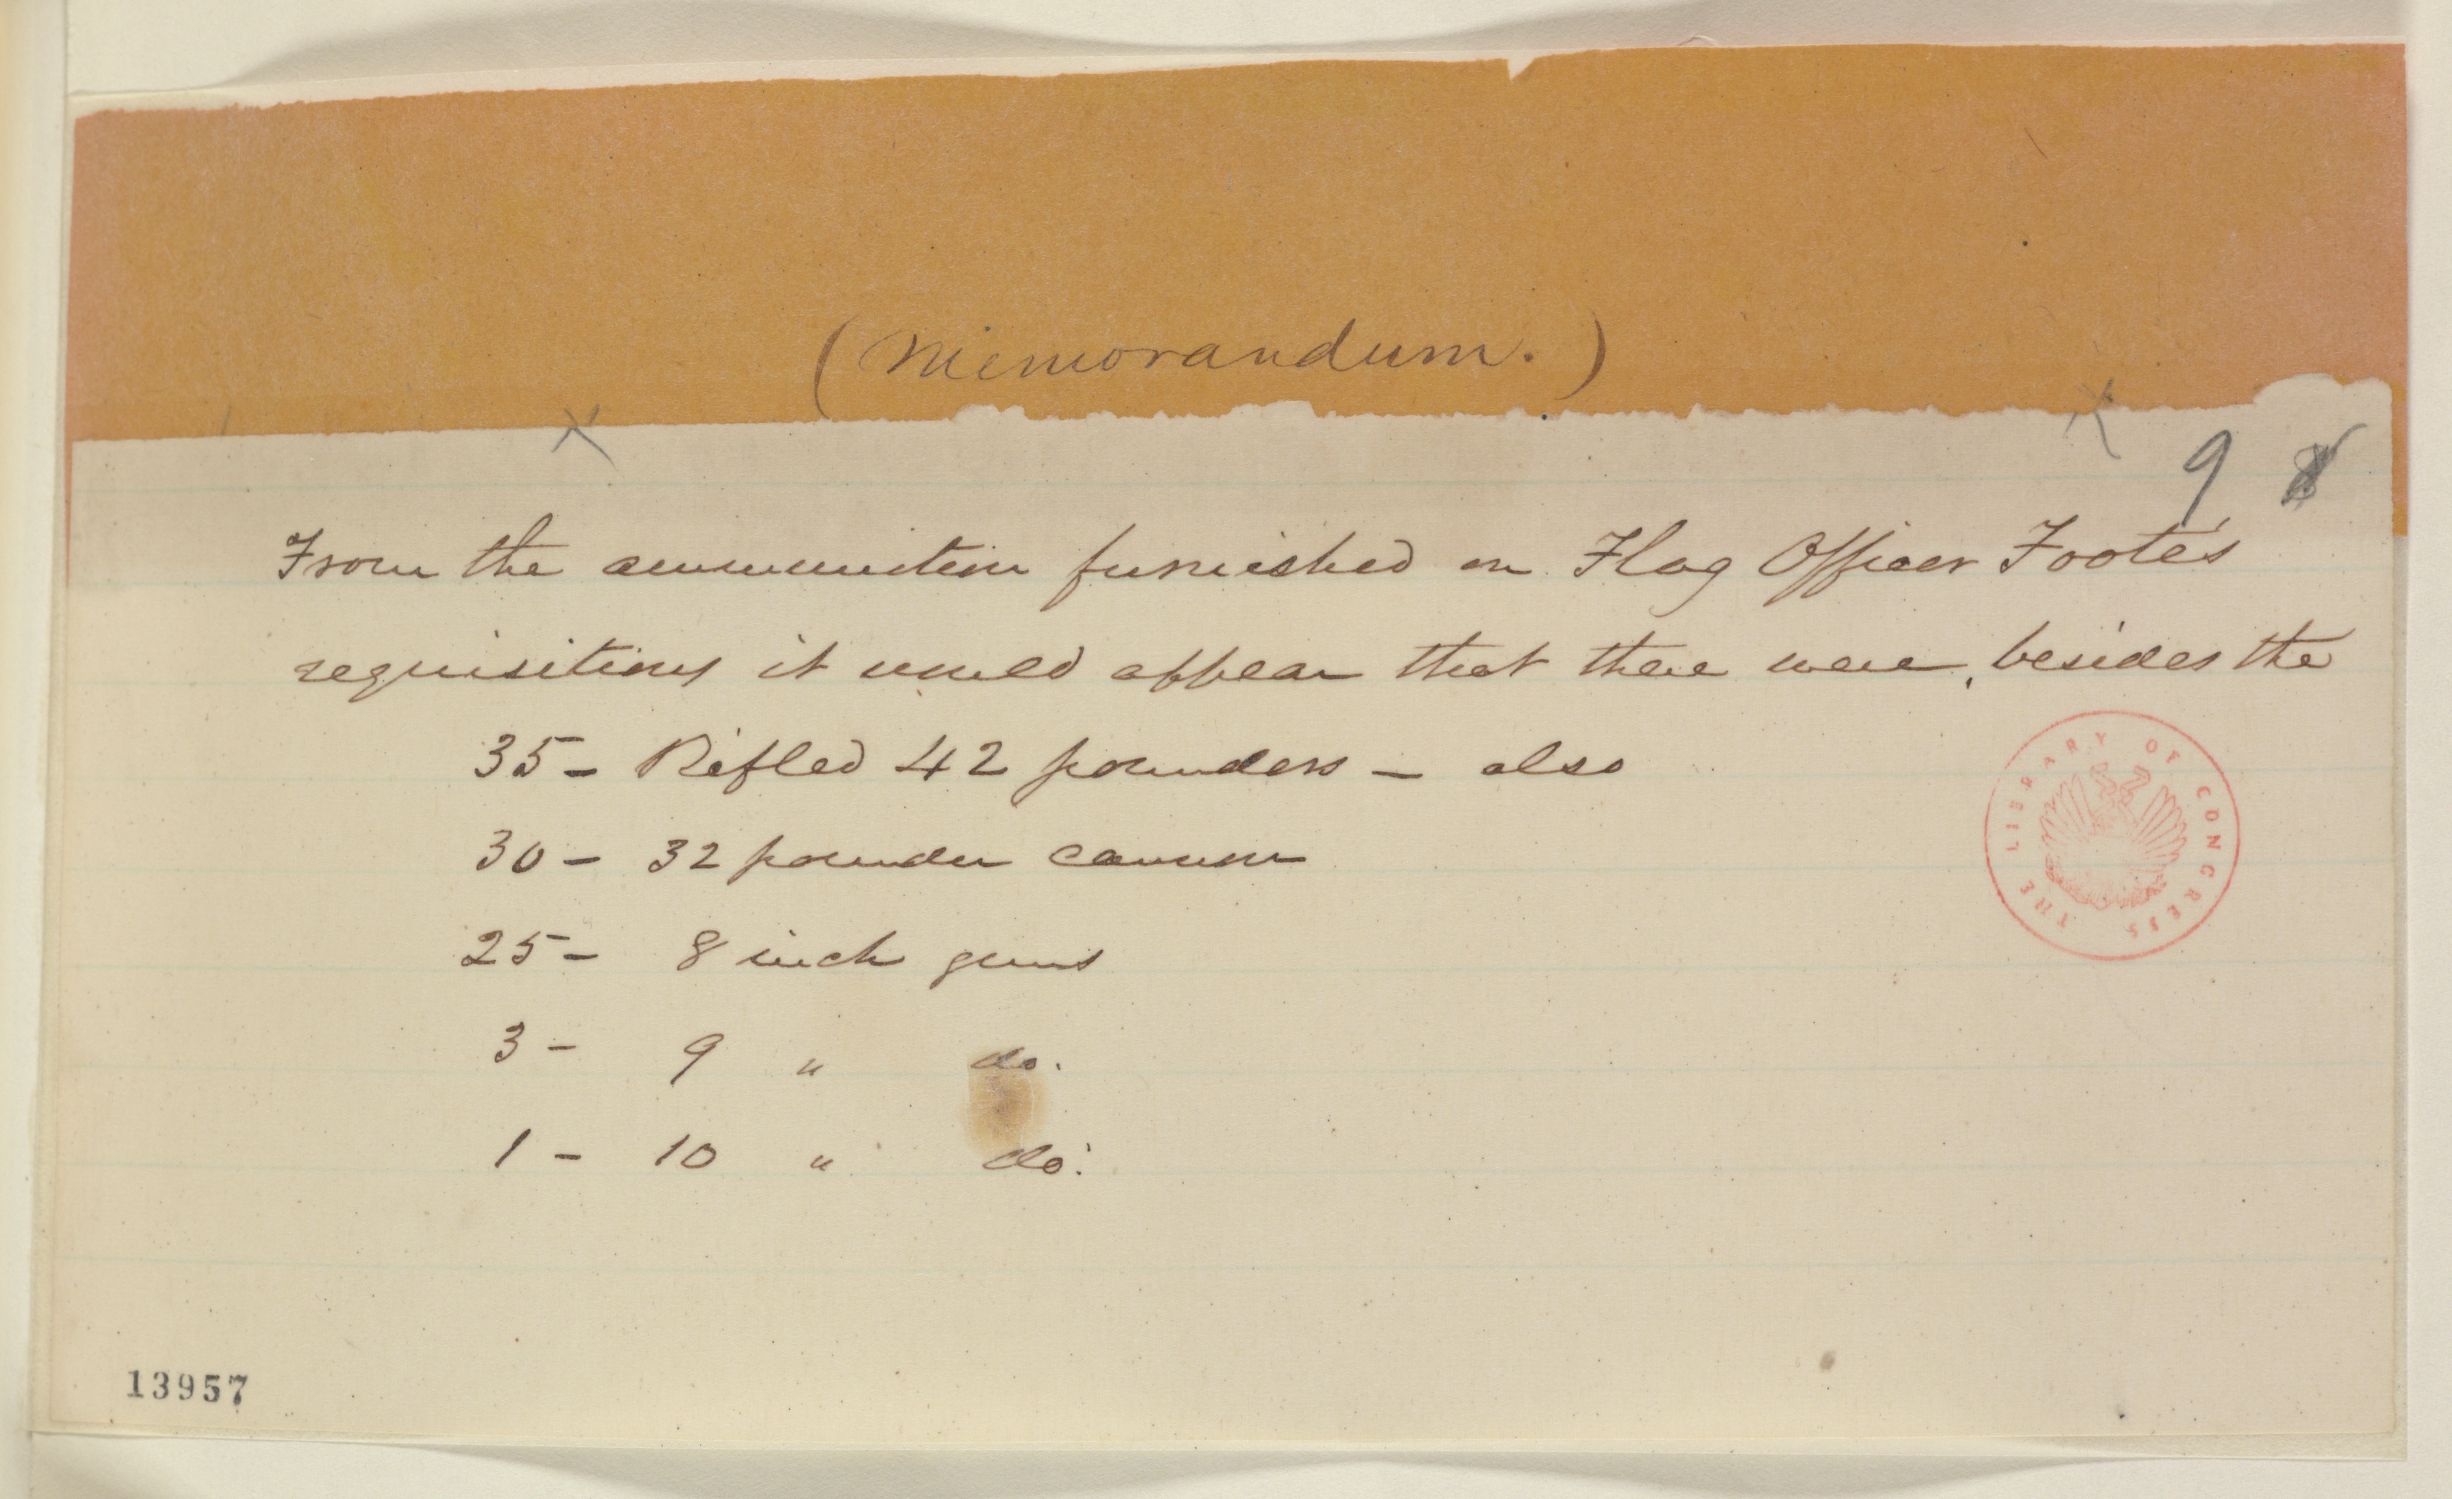 (Memorandum.)
9 8
From the ammunition furnished on Flag Officer Foote's
requisitions it would appear that there were, besides the
35 - Rifled 42 pounders - also
30 - 32 pounder cannon
25 - 8 inch guns
3 - 9 " do.
1 - 10 " do.
THE LIBRARY OF CONGRESS
13957